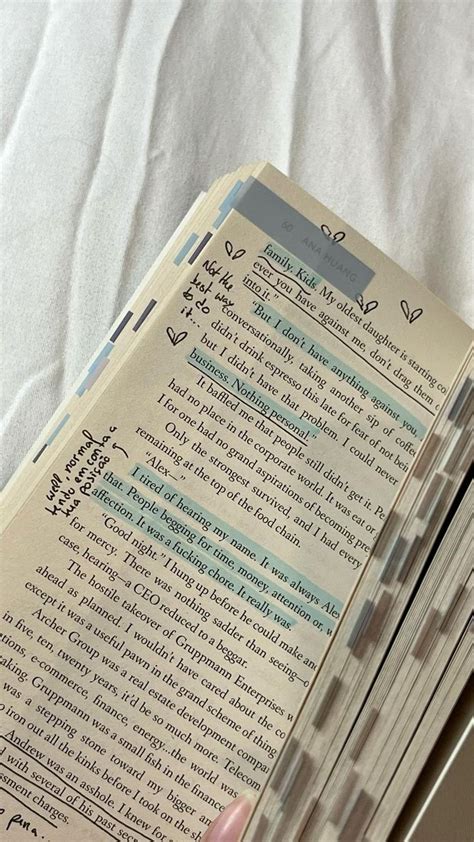 60 ANA HUANG
family. Kids. My oldest daughter is starting co
ever you have against me, don't drag them
into it."
"But I don't have anything against you,
Conversationally, taking another sip of coffee
didn't drink espresso this late for fear of not bei
but I didn't have that problem. I could never
business. Nothing personal."
It baffled me that people still didn't get it. Pe
had no place in the corporate world. It was eat or
I for one had no grand aspirations of becoming pre
Only the strongest survived, and I had every
remaining at the top of the food chain.
"Alex—"
I tired of hearing my name. It was always Alex
that. People begging for time, money, attention or, w
affection. It was a fucking chore. It really was.
"Good night." I hung up before he could make ano
for mercy. There was nothing sadder than seeing—o
case, hearing—a CEO reduced to a beggar.
The hostile takeover of Gruppmann Enterprises w
ahead as planned. I wouldn't have cared about the co
except it was a useful pawn in the grand scheme of thing
Archer Group was a real estate development compa
in five, ten, twenty years, it'd be so much more. Telecom
tions, e-commerce, finance, energy...the world was
aking. Gruppmann was a small fish in the finance
was a stepping stone toward my bigger am
o iron out all the kinks before I took on the sh
Andrew was an asshole. I knew for s
d with several of his past sece
ssment charges.
Not the
best way
to do
it...
well normal
tua posição
pena...